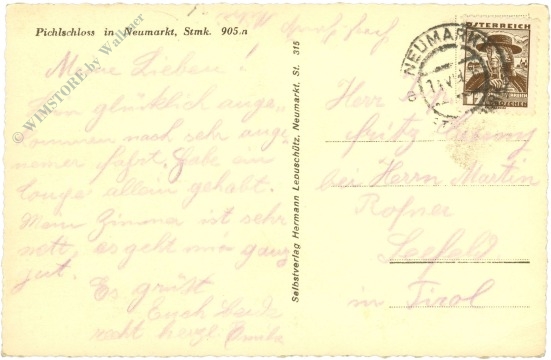 Pichlschloss in Neumarkt, Stmk. 905 m
© WIMSTORE by Wallauer
Meine Lieben!
Bin glücklich ange-
kommen nach sehr ange-
nemer Fahrt. Habe ein
Coupe allein gehabt.
Mein Zimmer ist sehr
nett, es geht mir ganz
gut.
Es grüßt
Euch beide
recht herzl.
Selbstverlag Hermann Leouschütz, Neumarkt, St. 315
ÖSTERREICH
12 GROSCHEN
NEUMARKT
Herr
Fritz
bei Herrn Martin
Rofner
Seefeld
in Tirol